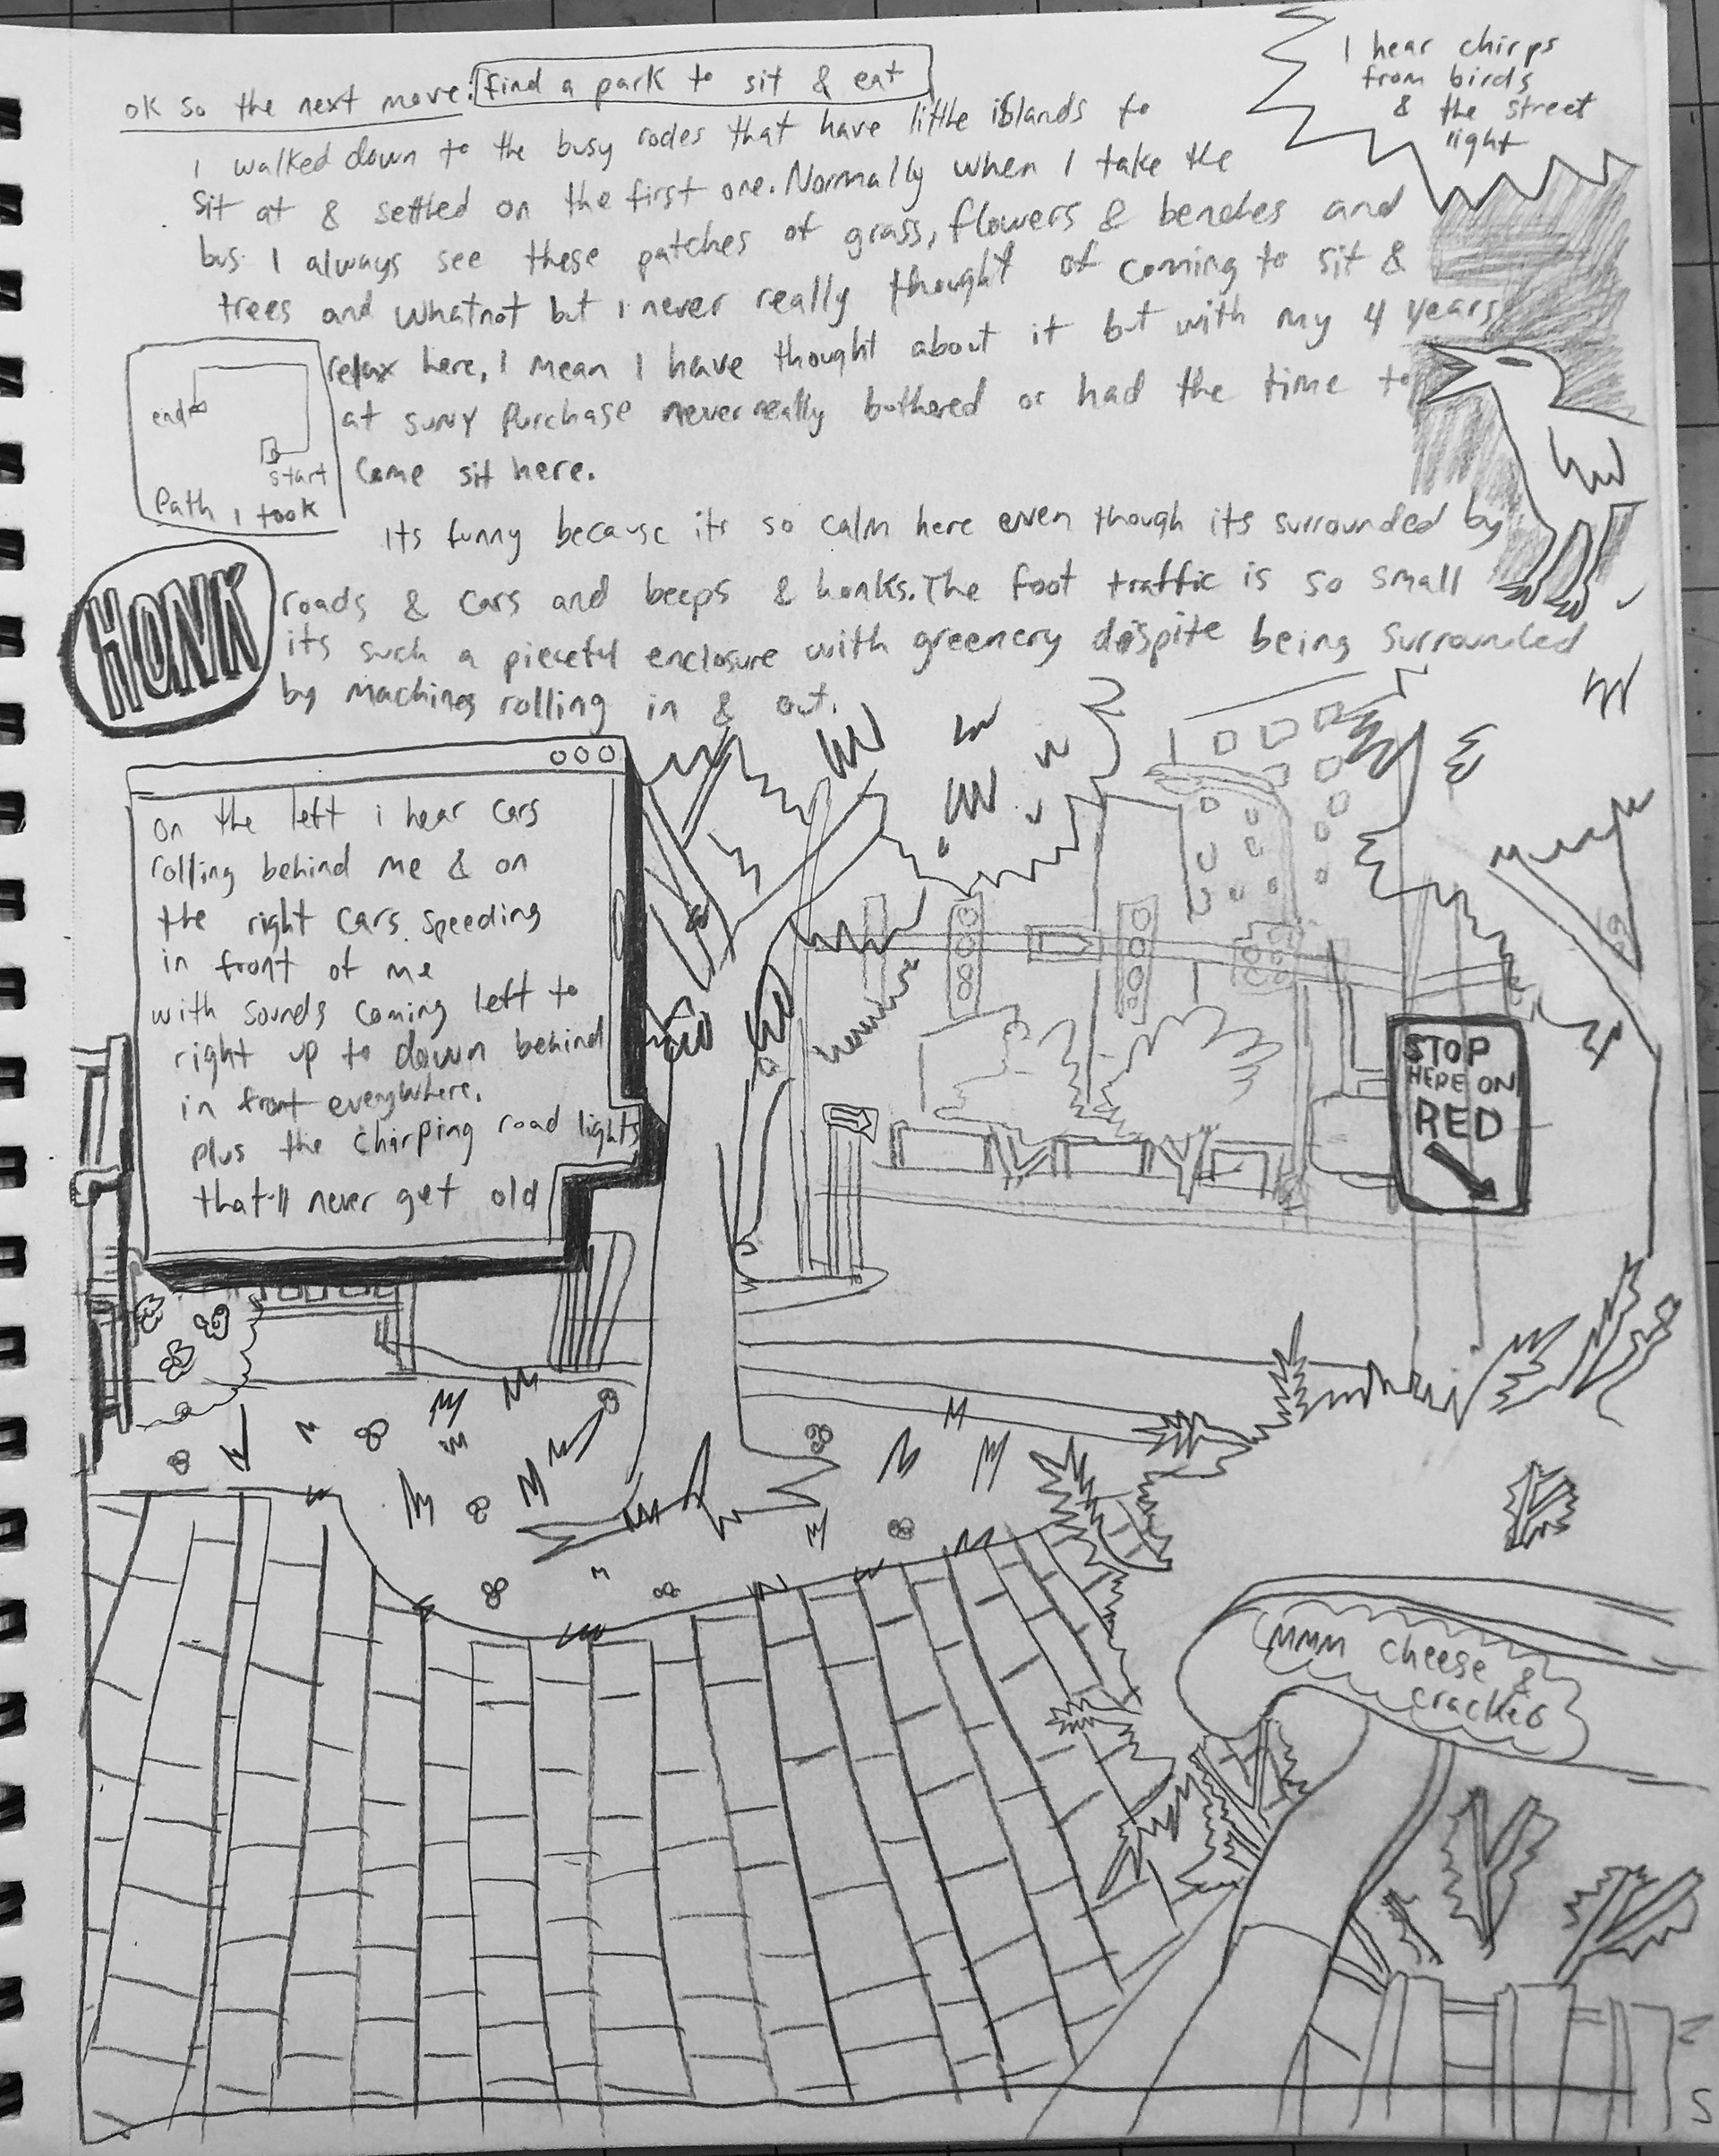 ok so the next move: find a park to sit & eat
I walked down to the busy rodes that have little islands to
sit at & settled on the first one. Normally when I take the
bus I always see these patches of grass, flowers & benches and
trees and whatnot but I never really thought of coming to sit &
relax here, I mean I have thought about it but with my 4 years
at suny Purchase never really bothered or had the time to
come sit here.
its funny because its so calm here even though its surrounded by
roads & cars and beeps & honks. The foot traffic is so small
its such a pieceful enclosure with greenery despite being surrounded
by machines rolling in & out.
I hear chirps
from birds
& the street
light
end
start
Path I took
HONK
on the left i hear cars
rolling behind me & on
the right cars speeding
in front of me
with sounds coming left to
right up to down behind
in front everywhere.
plus the chirping road lights
that'll never get old
STOP
HERE ON
RED
MMM cheese &
crackers
S